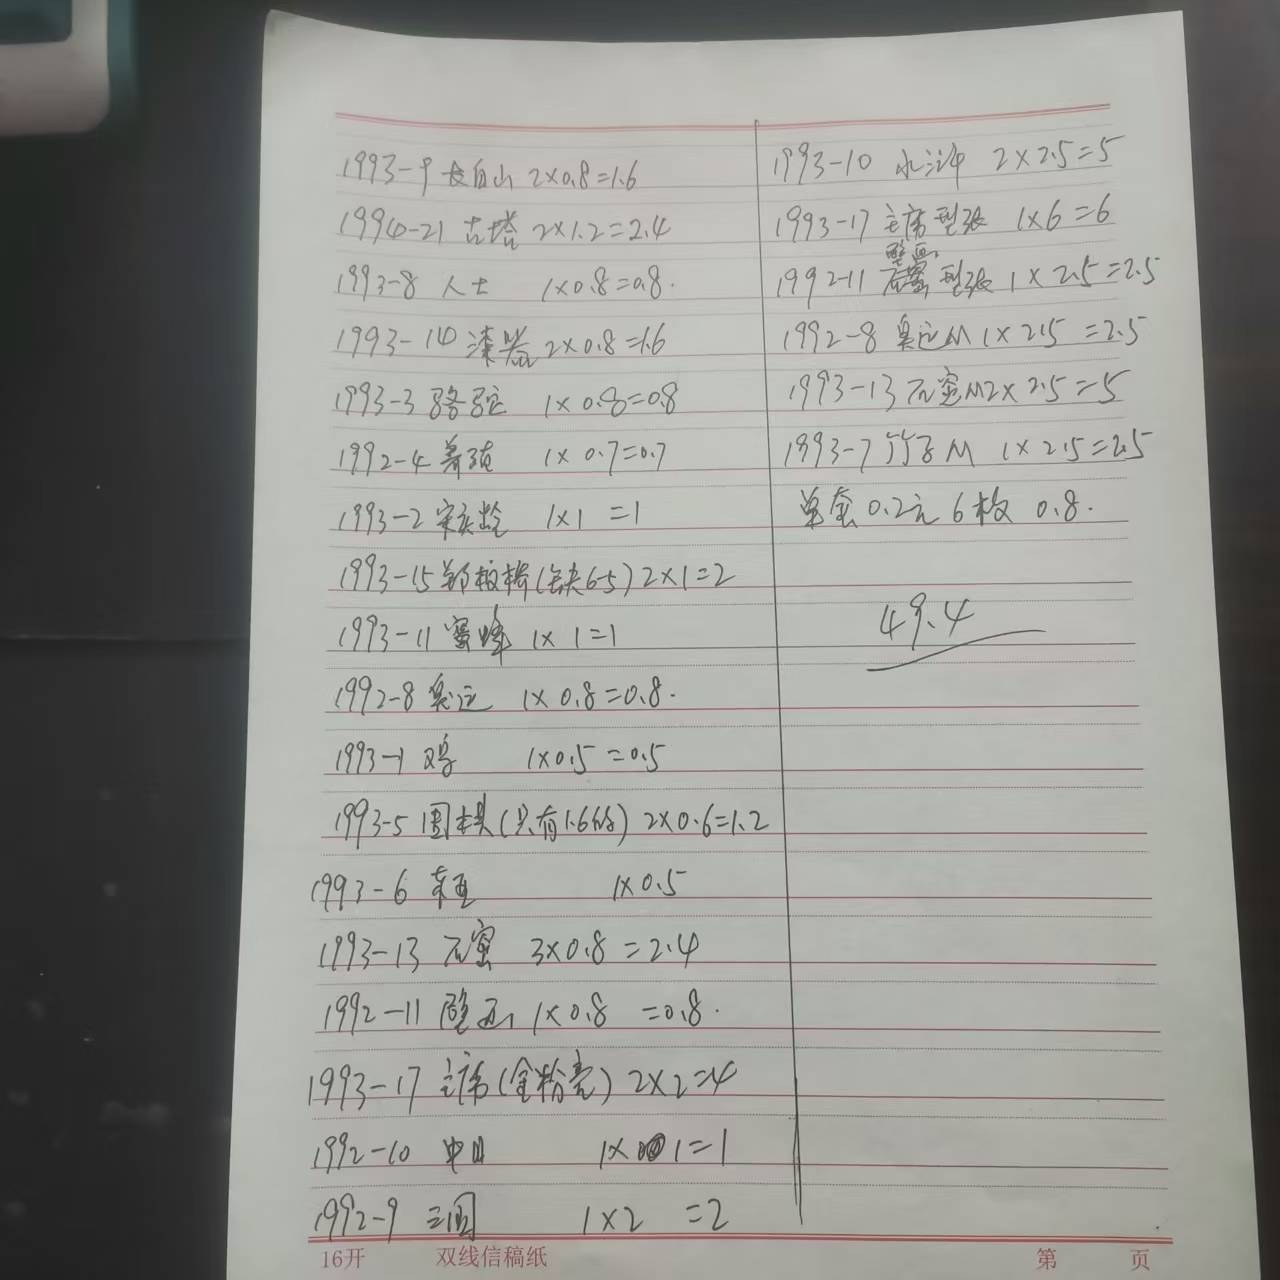 1993-9 长白山 2×0.8=1.6
1994-21 古塔 2×1.2=2.4
1993-8 人士 1×0.8=0.8.
1993-14 漆器 2×0.8=1.6
1993-3 骆驼 1×0.8=0.8
1992-4 养殖 1×0.7=0.7
1993-2 宋庆龄 1×1=1
1993-15 郑板桥(缺6-5) 2×1=2
1993-11 蜜蜂 1×1=1
1992-8 奥运 1×0.8=0.8.
1993-1 鸡 1×0.5=0.5
1993-5 围棋(只有1.6的) 2×0.6=1.2
1993-6 东亚 1×0.5
1993-13 石窟 3×0.8=2.4
1992-11 壁画 1×0.8=0.8.
1993-17 主席(金粉亮) 2×2=4
1992-10 中日 1×1=1
1992-9 三国 1×2=2
1993-10 水浒 2×2.5=5
1993-17 主席型张 1×6=6
壁画
1992-11 石窟型张 1×2.5=2.5
1992-8 奥运M 1×2.5=2.5
1993-13 石窟M 2×2.5=5
1993-7 竹子M 1×2.5=2.5
单套0.2元 6枚 0.8.
49.4
16开 双线信稿纸 第 页